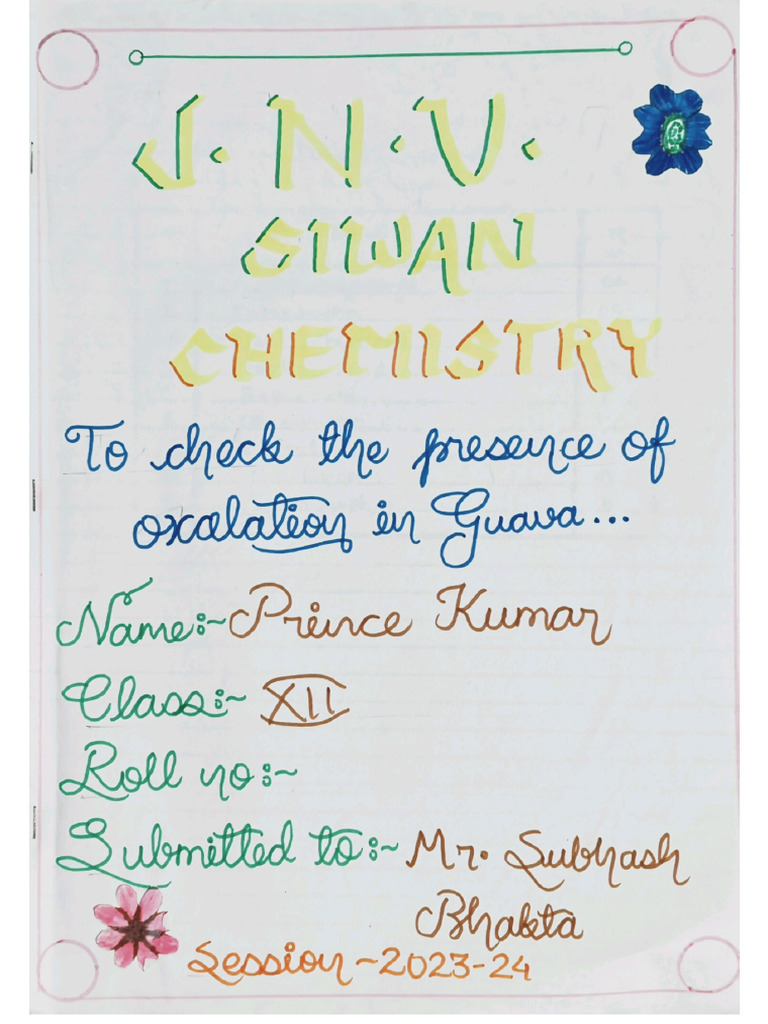 J.N.V.
SIWAN
CHEMISTRY
To check the presence of
oxalation in Guava...
Name:~ Prince Kumar
Class:~ XII
Roll no:~
Submitted to:~ Mr. Subhash
Bhakta
Session ~ 2023-24